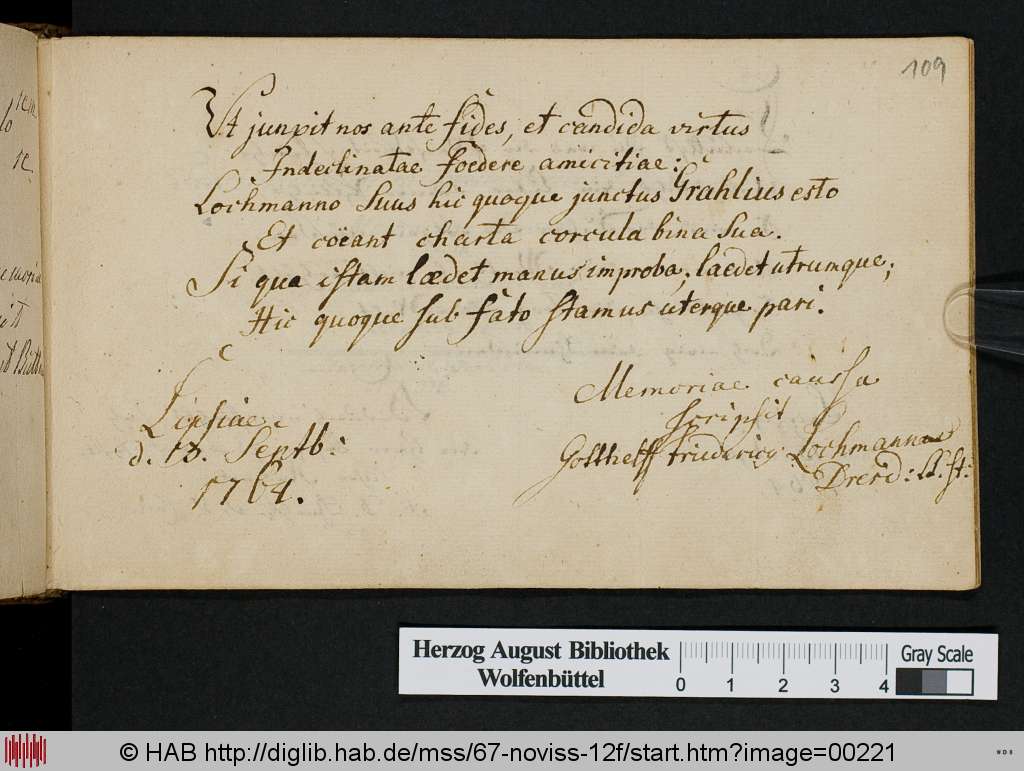 109
Ut junpit nos ante fides, et candida virtus
Indeclinatae foedere amicitiae:
Lochmanno Suus hic quoque junctus Grahlius esto
Et coëant charta corcula bina Sua.
Si qua istam lædet manus improba, laedet utrumque;
Hic quoque sub fato stamus uterque pari.
Memoriae caussa
scripsit
Gotthelff Fridericq Lochmannus
Dresd: LL. St:
Lipsiae
d. 13. Septb:
1764.
Herzog August Bibliothek
Wolfenbüttel
0 1 2 3 4
Gray Scale
© HAB http://diglib.hab.de/mss/67-noviss-12f/start.htm?image=00221